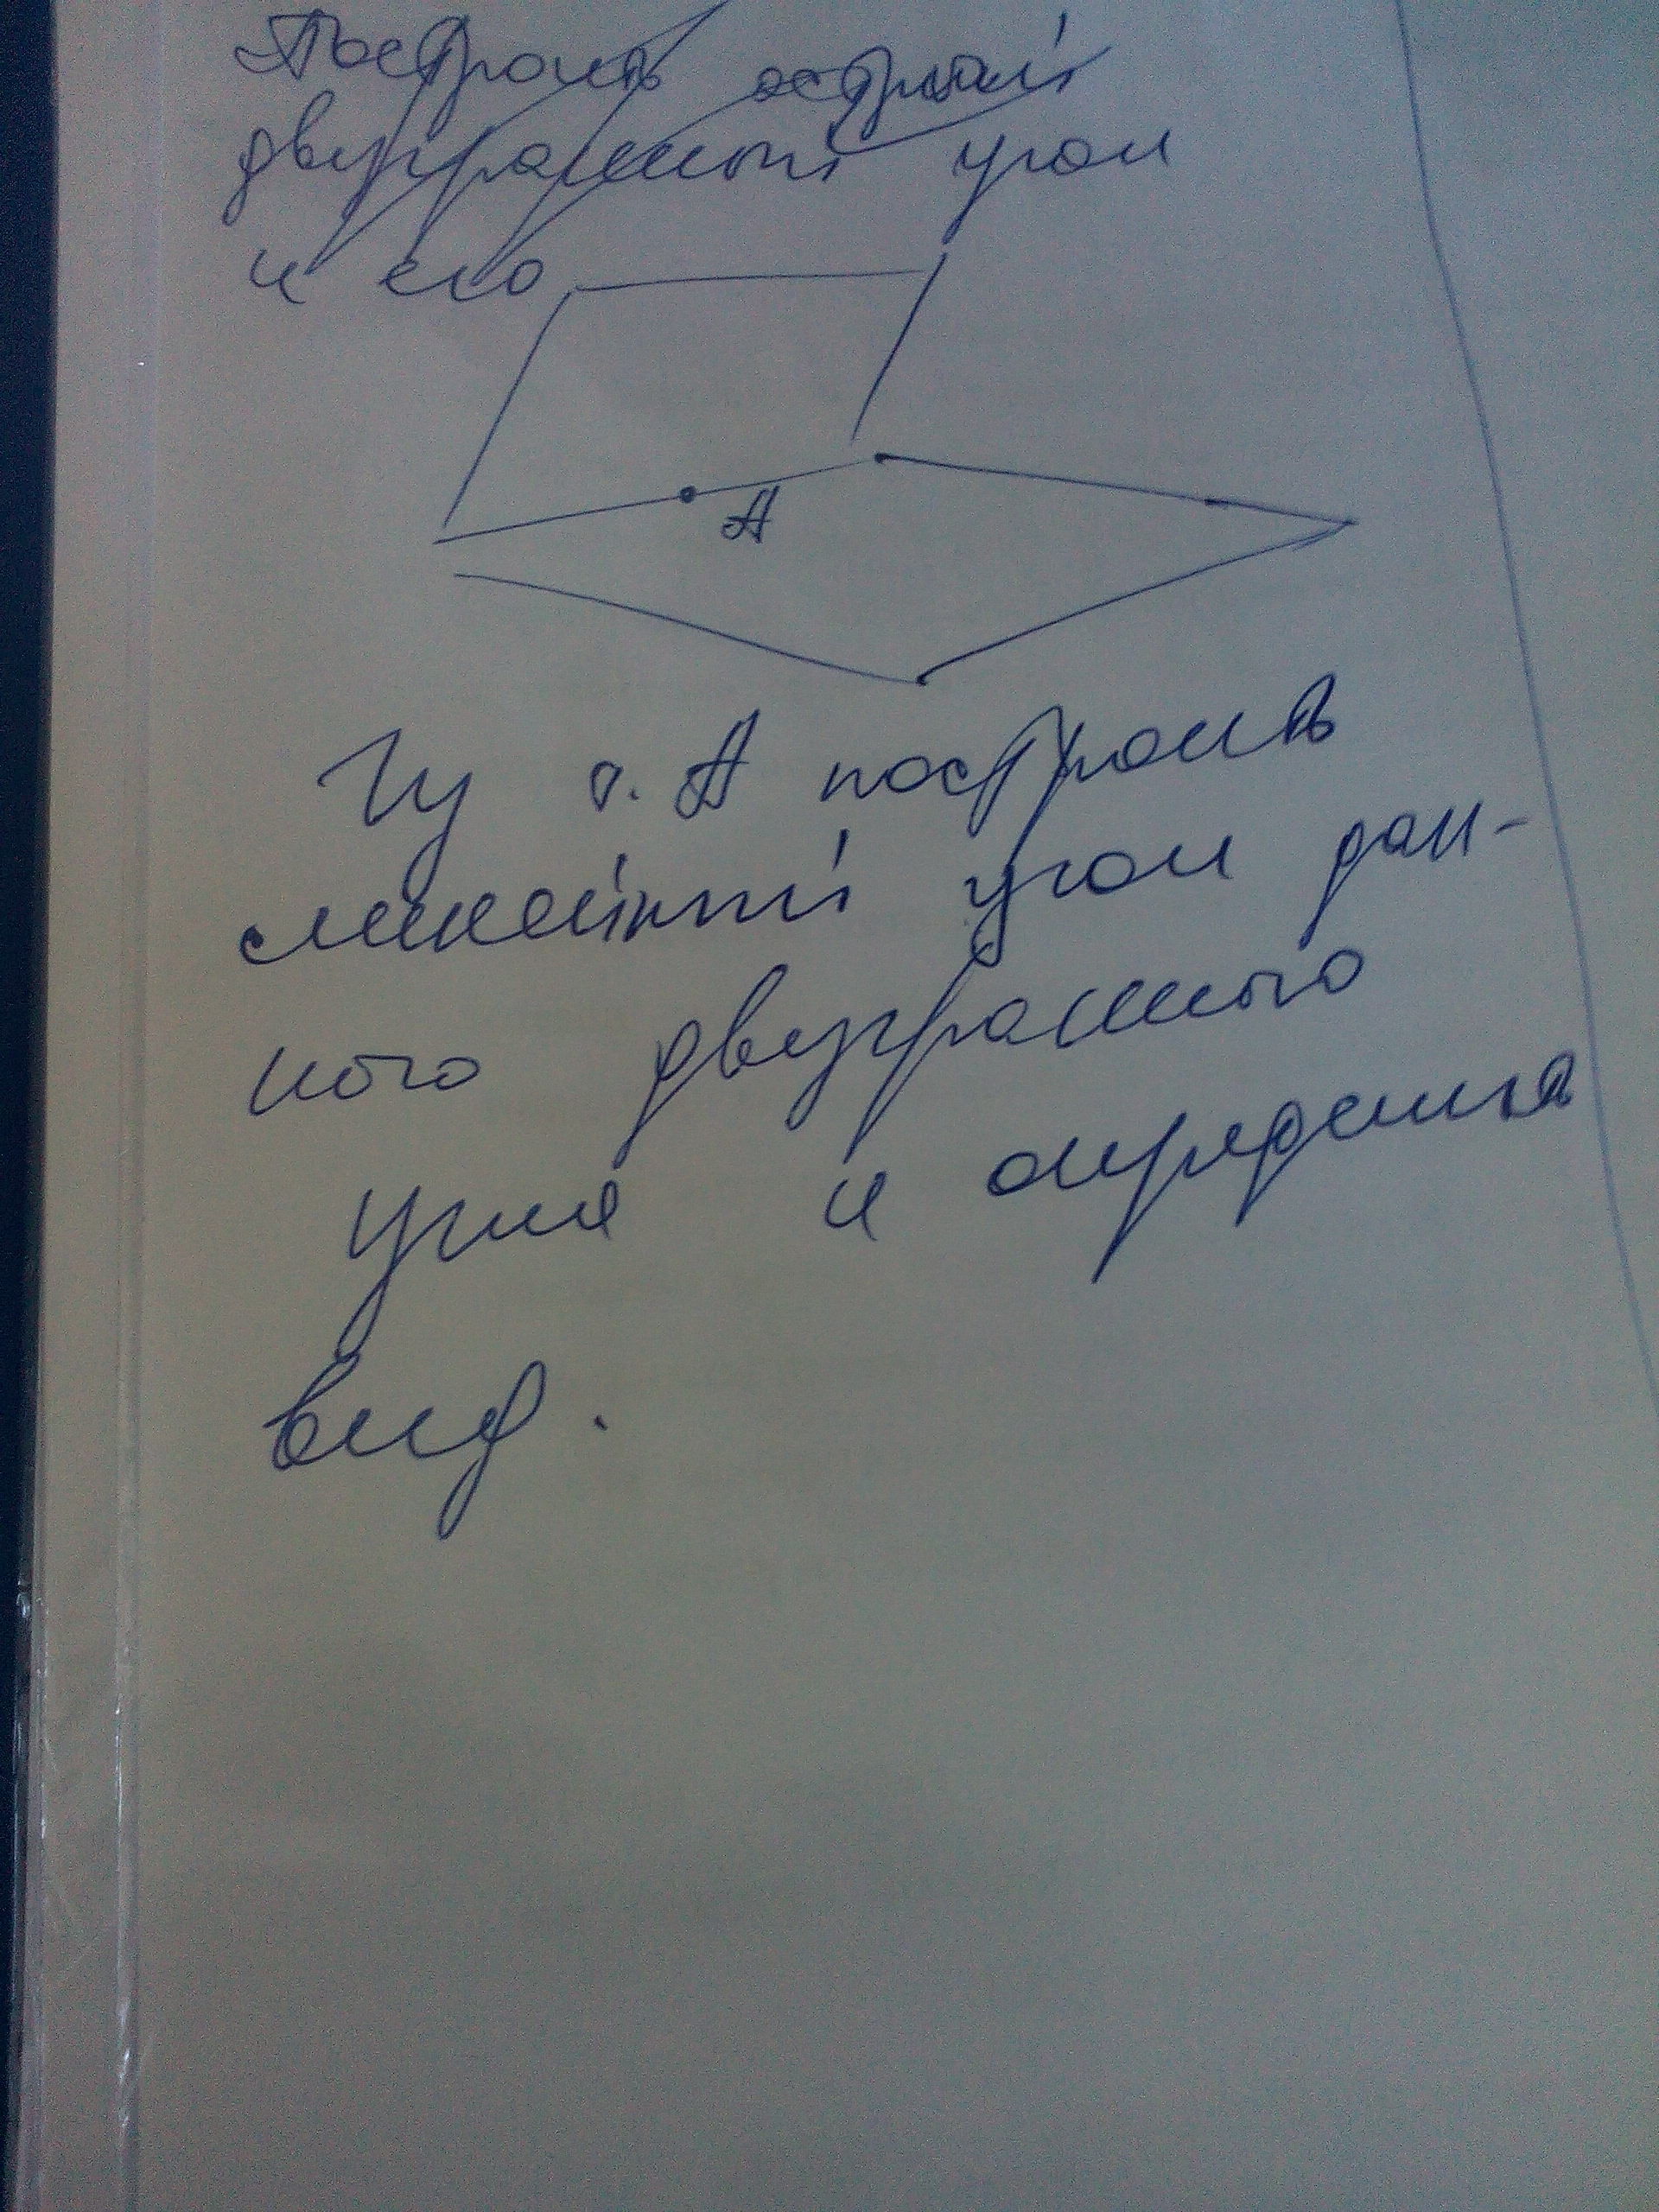 Построить острый
двугранный угол
и его
A
Из т. А построить
линейный угол дан-
ного двугранного
угла и определить
вид.